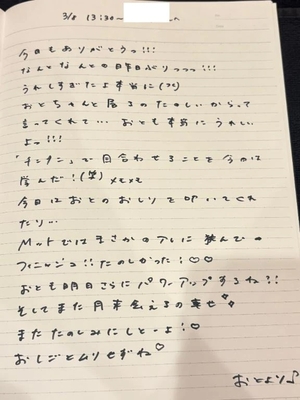 3/8 13:30〜 へ
今日もありがとうっ!!!
なんとなんとの昨日ぶりっっっ!!!
うれしすぎたよ本当に(;_;)
おとちゃんと居るのたのしいからって
言ってくれて… おとも本当にうれしい
よっ!!!
で回合わせることを今日は
学んだ!(笑) メモメモ
今日はおとのおしりも叩いてくれ
たり…
Matではまさかのアレに挟んで
フィニッシュ!!たのしかった!♡♡
おとも明日さらにパワーアップするね?!
そしてまた月末会えるの幸せ
またたのしみにしとーよ!♡
おしごとムリせずね♡
おとより♪